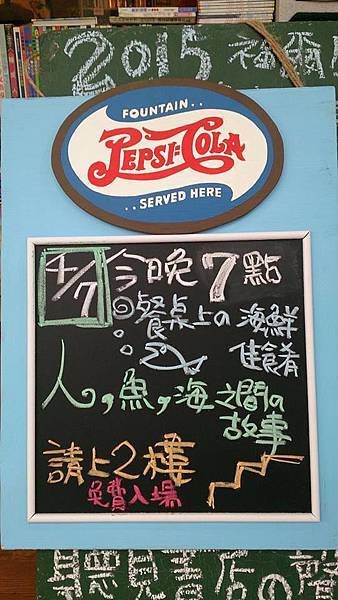 2015
FOUNTAIN..
PEPSI=COLA
..SERVED HERE
4/7 今晚7點
餐桌上の海鮮
佳餚
人，魚，海之間の
故事
請上2樓
免費入場